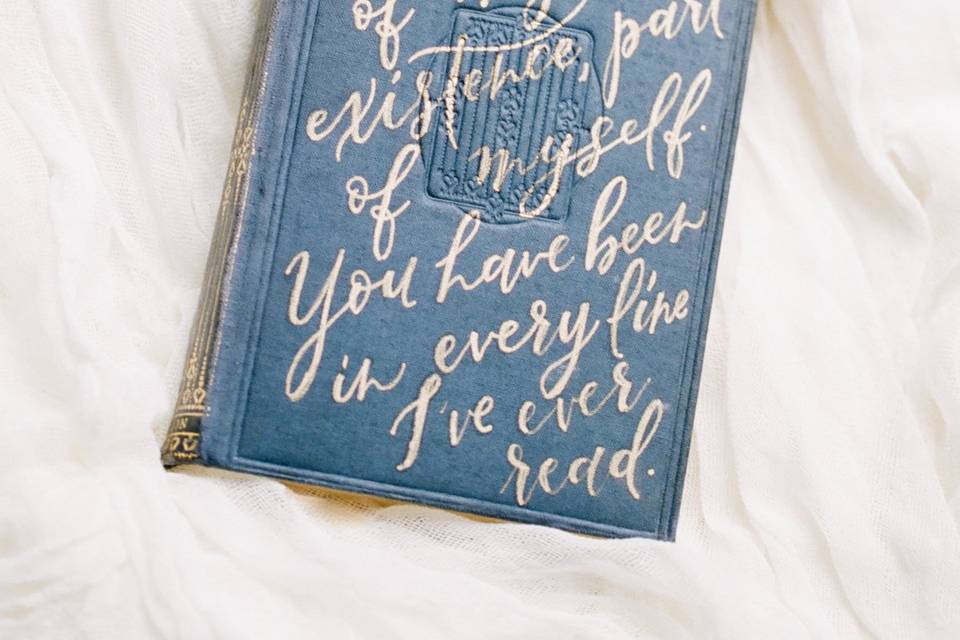 of
existence, part
of myself.
You have been
in every line
I've ever
read.